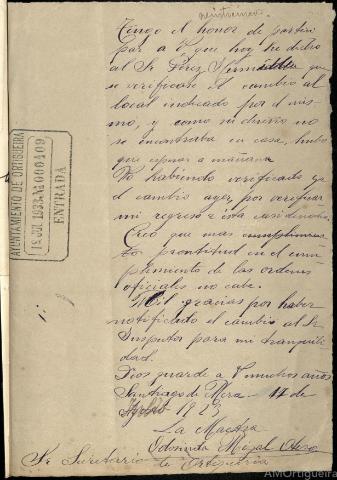 Tengo el honor de partici
par a V. que hoy he dicho
al Sr. Pérez
se verificase el cambio al
local indicado por el mis
mo, y como su dueño no
se encontraba en casa, hubo
que esperar a mañana.
No habiendo verificado ya
el cambio ayer, por verificar
mi regreso a esta casi de noche.
Creo que mas
prontitud en el cum
plimiento de las ordenes
oficiales no cabe.
Mil gracias por haber
notificado el cambio al Sr.
Inspector para mi tranquili
dad.
Dios guarde a V. muchos años
Santiago de Mera de
1933
La Maestra
Sr. Secretario de Ortigueira
AYUNTAMIENTO DE ORTIGUEIRA
JUL. 1933 № 000409
ENTRADA
AMOrtigueira